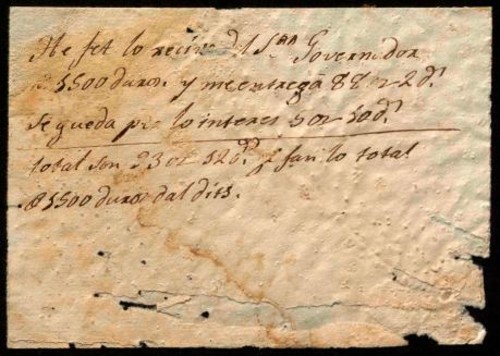 He fet lo recivo del Sñr Governador
de 5500 duros. y me entregá 88 or 2 d.s
Se queda per lo interes 5 or 10 d.s
total son 93 or 12 d.s y fan lo total
5500 duros dal dits.